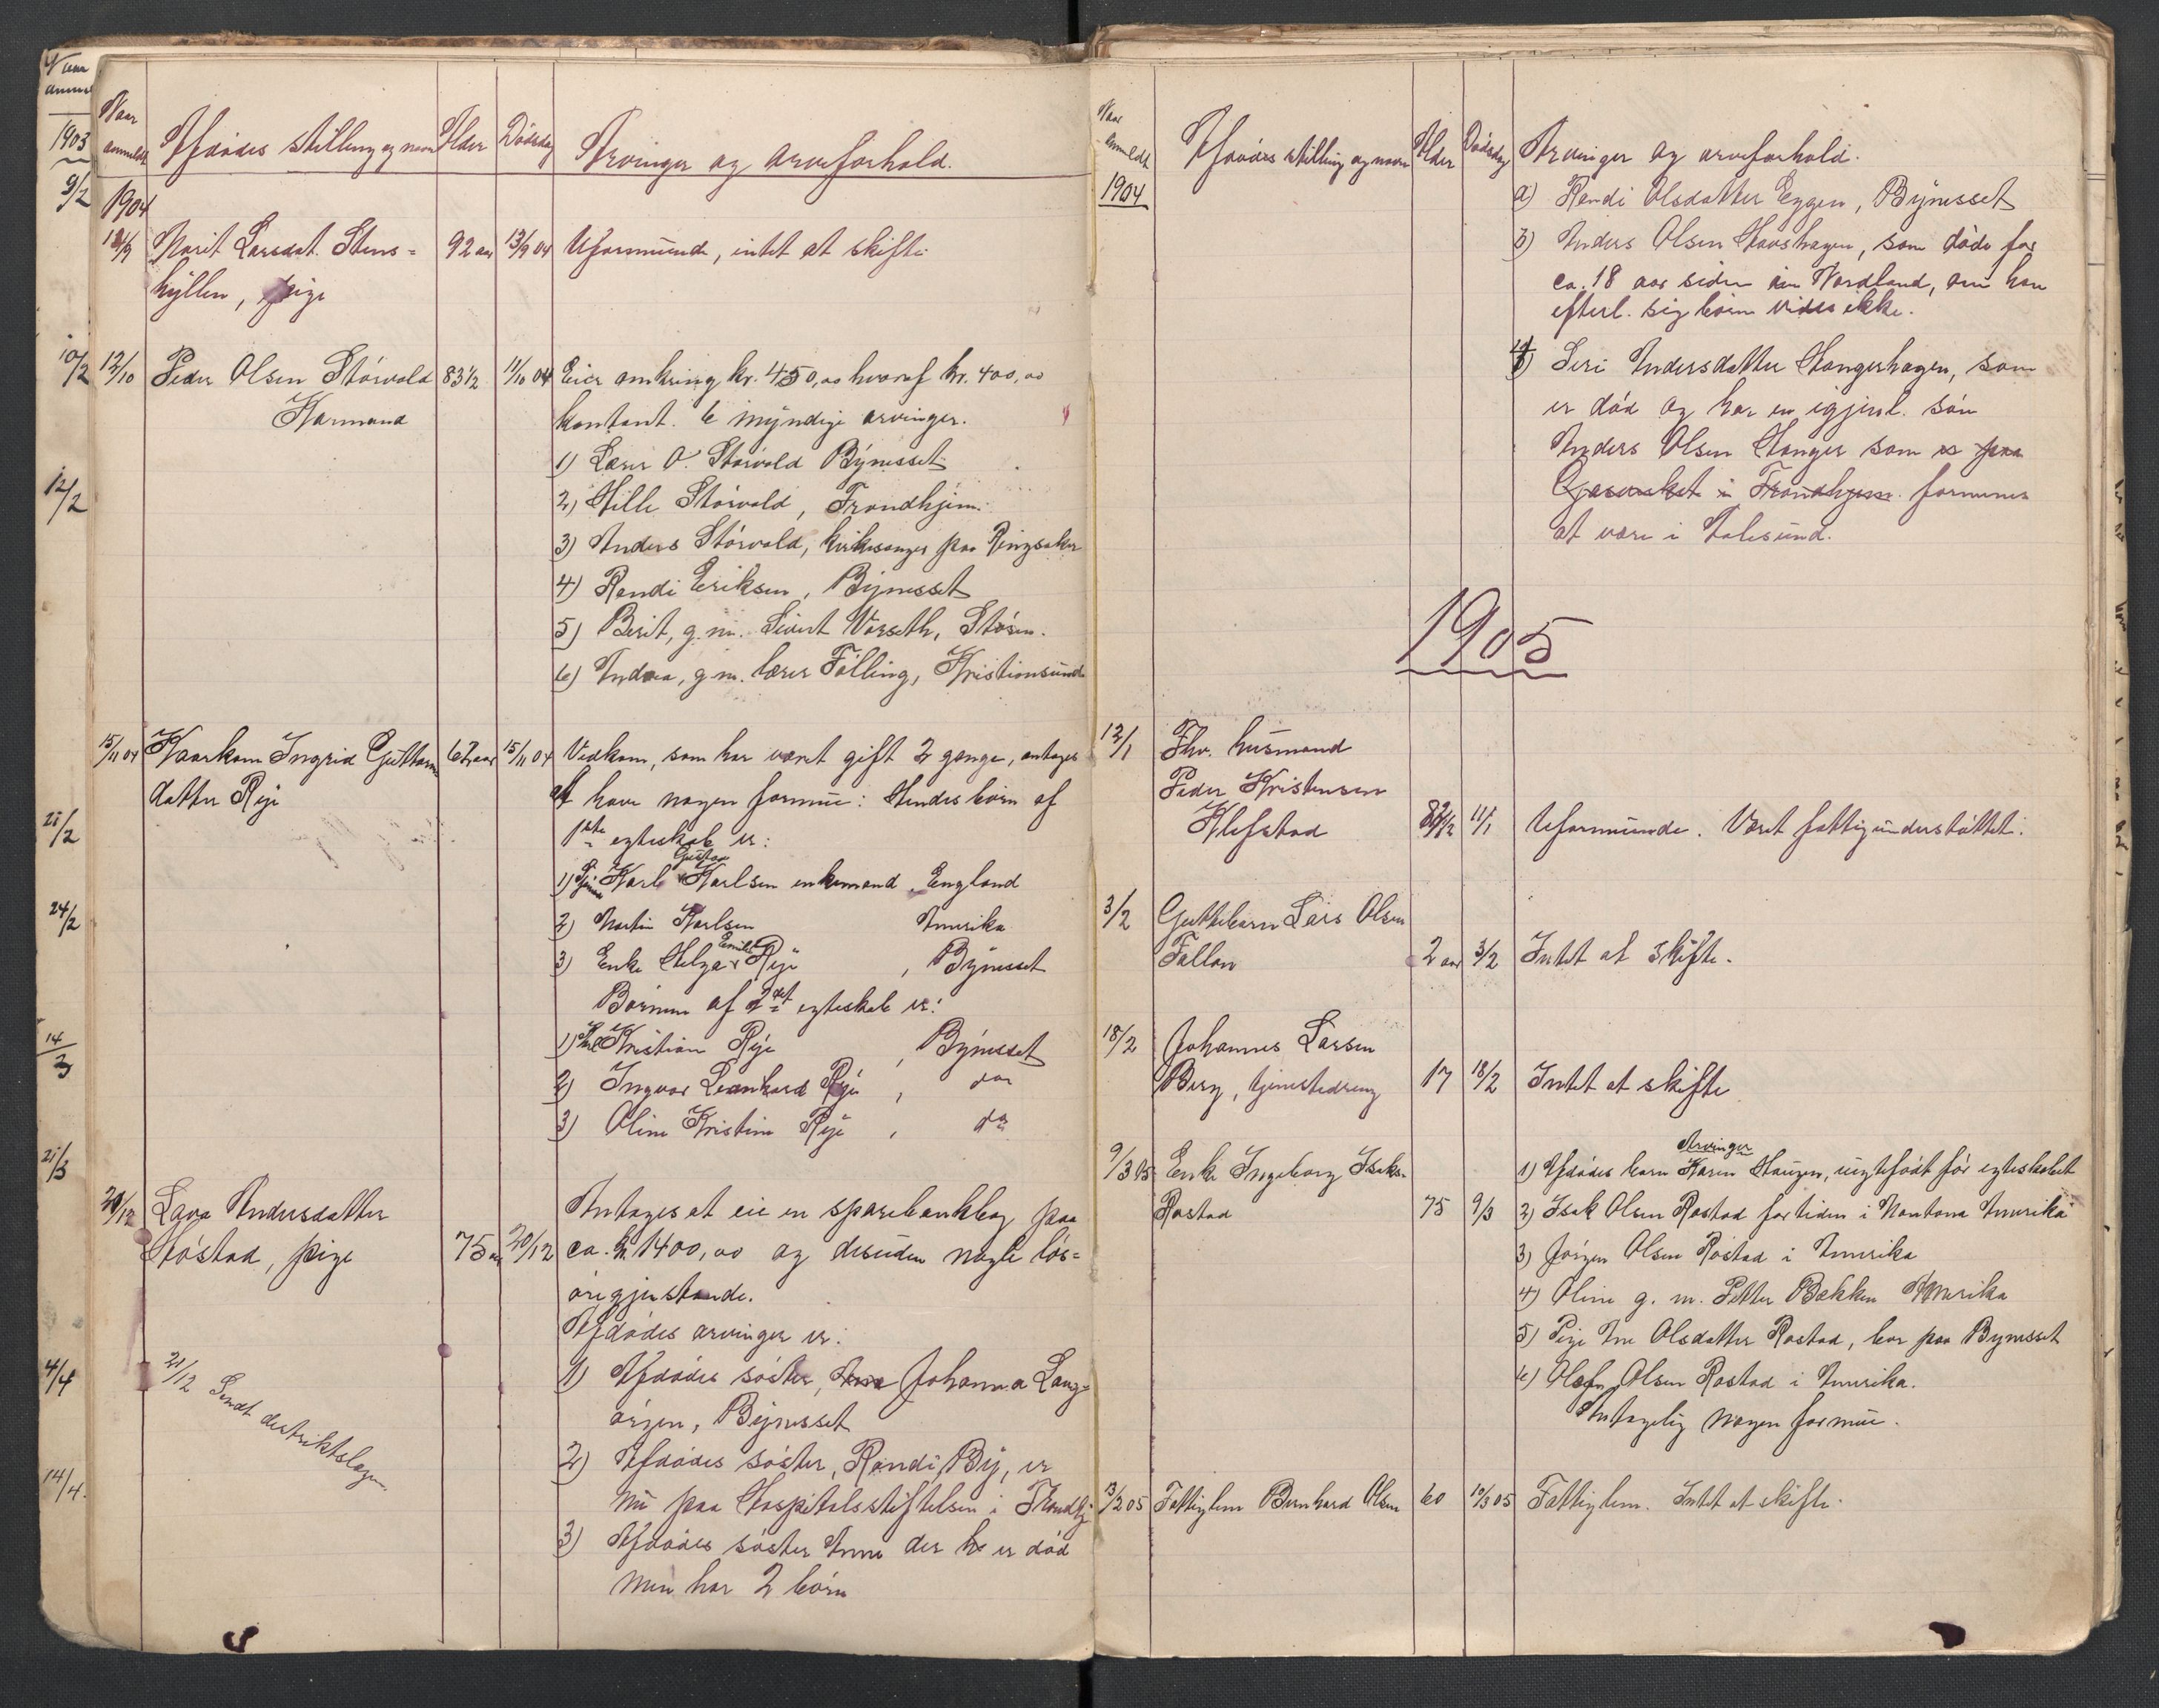 Naar
anmeldt
Afdödes stilling og navn
Alder
Dödsdag
Arvinger og arveforhold.
1903
9/2
10/2
12/2
21/2
24/2
14/3
21/3
4/4
14/4.
1904
Marit Larsdat. Stens=
hyllen, pige
92 aar
13/9 04
Uformuende, intet at skifte
12/10
Peder Olsen Störvold
Karmand
83 1/2
11/10 04
Eier omkring kr. 450,00 hvoraf kr. 400,00
kontant. 6 myndige arvinger.
1) Lærer O. Störvold Bynesset
2) Hille Störvold, Trondhjem.
3) Anders Störvold, kirkesanger paa Ringsaker
4) Randi Eriksen, Bynesset
5) Berit, g. m. Sivert Vorseth, Stören.
6) Andrea, g. m. lærer Fölling, Kristiansund
15/11 04
Kaarkone Ingrid Guttorms
datter Rye
67 aar
15/11 04
Vedkom, som har været gift 2 gange, antages
at have nogen formue: Hendes börn af
1ste egteskab er:
Gustav
1) Karl Karlsen enkemand England
2) Martin Karlsen Amerika
Emilie
3) Enke Helga Rye, Bynesset
Börnene af 2det egteskab er:
1) Kristian Rye, Bynesset
2) Ingvar Leonhard Rye, do
3) Oline Kristine Rye, do
20/12
Lava Andersdatter
Höstad, pige
75 aar
20/12
Antages at eie en sparebankbog paa
ca. kr 1400,00 og desuden nogle lös=
öregjenstande.
Afdödes arvinger er:
1) Afdödes söster, Johanna Lang=
örgen, Bynesset
2) Afdödes söster, Randi By, er
nu paa Hospitalsstiftelsen i Trondhj
3) Afdödes söster Anne der er död
men har 2 börn
21/12 Sendt distriktslægen
Naar
anmeldt
Afdödes stilling og navn
Alder
Dödsdag
Arvinger og arveforhold.
1904
a) Randi Olsdatter Eggen, Bynesset
b) Anders Olsen Havshagen, som döde for
ca. 18 aar siden i Nordland, om han
efterl. sig börn vides ikke.
4) Seri Andersdatter Stangerhagen, som
er död og har en igjenl. sön
Anders Olsen Stanger som er paa
Gasverket i Trondhjem. formenes
at være i Aalesund.
1905
12/1
Fhv. husmand
Peder Kristensen
Klefstad
11/1
Uformuende. Været fattigunderstöttet.
3/2
Guttebarn Lars Olsen
Fallan
2 aar
3/2
Intet at skifte.
18/2
Johannes Larsen
Berg, tjenestedreng
17
18/2
Intet at skifte
9/3 05
Enke Ingeborg Isaks.
Rostad
75
9/3
Arvinger
1) Afdödes barn Karen Haugen, uegtefödt för egteskabet
2) Isak Olsen Rostad for tiden i Montana Amerika
3) Jörgen Olsen Rostad i Amerika
4) Oline g. m. Petter Bækken Amerika
5) Pige Ane Olsdatter Rostad, bor paa Bynesset
6) Olaf Olsen Rostad i Amerika.
Antagelig nogen formue.
Fattiglem Bernhard Olsen
60
Fattiglem. Intet at skifte.